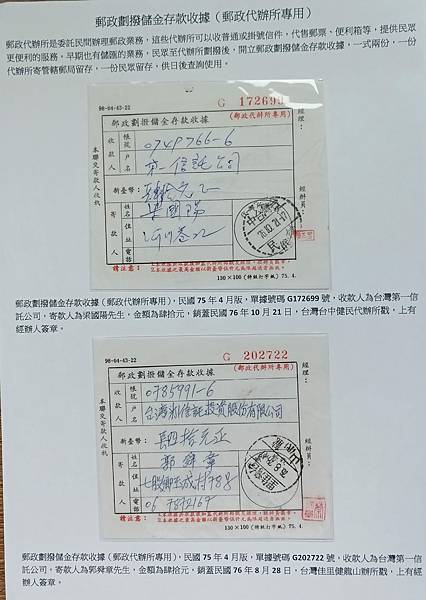 郵政劃撥儲金存款收據（郵政代辦所專用）
郵政代辦所是委託民間辦理郵政業務，這些代辦所可以收普通或掛號信件，代售郵票、便利箱等，提供民眾
更便利的服務。早期也有儲匯的業務，民眾至代辦所劃撥後，開立郵政劃撥儲金存款收據，一式兩份，一份
代辦所寄管轄郵局留存，一份民眾留存，供日後查詢使用。
98-04-43-22
G 172699
郵政劃撥儲金存款收據
(郵政代辦所專用)
帳號
0749766-6
收款人
戶名
第一信託公司
新臺幣：
肆拾元正
寄款人
姓名
梁國陽
住址
電話
本聯交寄款人收執
經理：
經辦員：
76.10.21
請注意：
130×100 (特銅打字紙) 75.4.
郵政劃撥儲金存款收據（郵政代辦所專用），民國 75 年 4 月版，單據號碼 G172699 號，收款人為台灣第一信
託公司，寄款人為梁國陽先生，金額為肆拾元，銷蓋民國 76 年 10 月 21 日，台灣台中健民代辦所戳，上有
經辦人簽章。
98-04-43-22
G 202722
郵政劃撥儲金存款收據
(郵政代辦所專用)
帳號
0785991-6
收款人
戶名
信託投資股份有限公司
新臺幣：
肆拾元正
寄款人
姓名
郭舜章
住址
七股鄉玉成村788
電話
06 7872169
本聯交寄款人收執
經理：
經辦員：
請注意：
130×100 (特銅打字紙) 75.4.
郵政劃撥儲金存款收據（郵政代辦所專用），民國 75 年 4 月版，單據號碼 G202722 號，收款人為台灣第一信
託公司，寄款人為郭舜章先生，金額為肆拾元，銷蓋民國 76 年 8 月 28 日，台灣佳里健龍山辦所戳，上有經
辦人簽章。